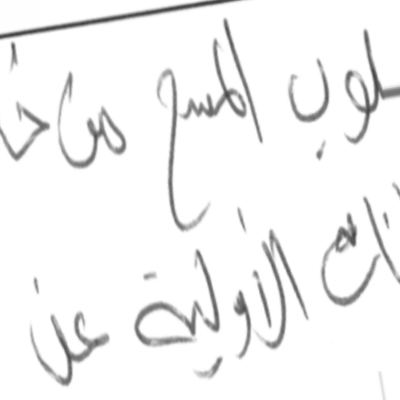 سلوب المسح من خ
ات الأولية عن